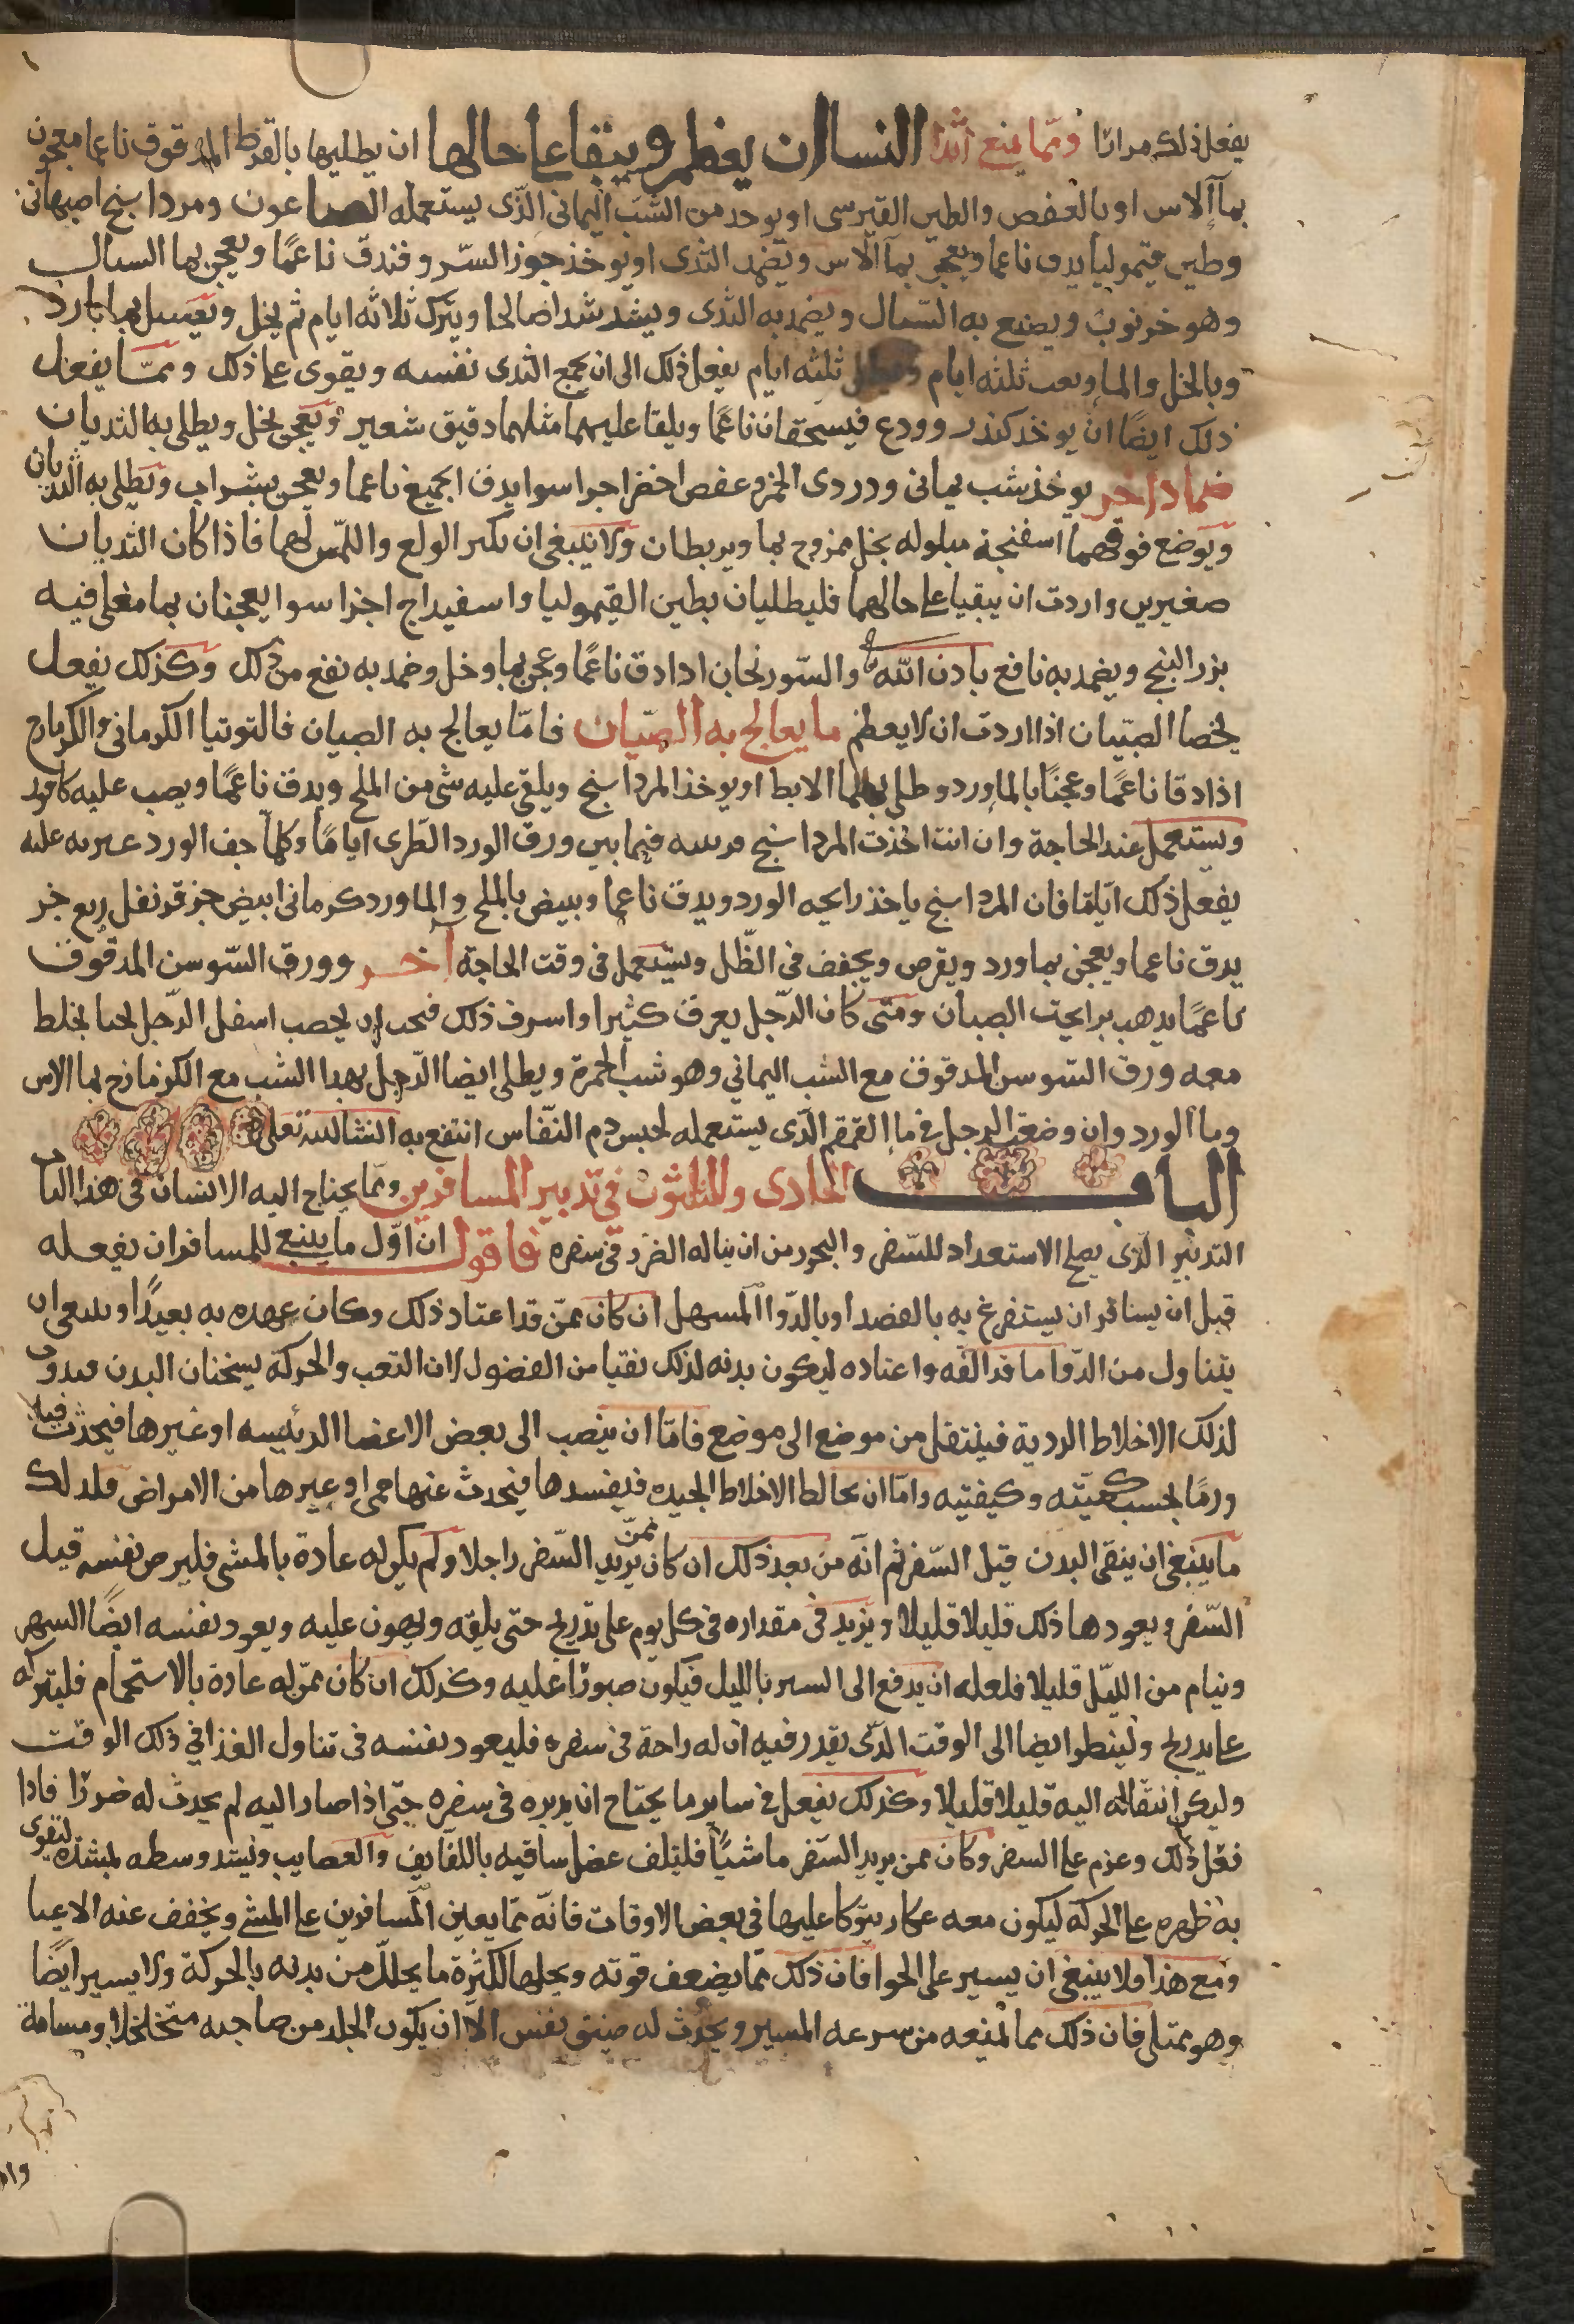 يفعل ذلك مرارا ومما يمنع اثدا النسا ان يعظم ويبقا على حالها ان يطليها بالقرط المدقوق ناعما معجون
بما الاس او بالعفص والطين القبرسى او يوخد من الشب اليمانى الذى يستعمله الصباغون ومرداسنج اصبهانى
وطين قيموليا يدق ناعما ويعجن بما الاس ويضمد الثدى او يوخذ جوز السرو فندق ناعما ويعجن بها السال
وهو خرنوب ويصنع به السال ويضمد به الثدى ويشد شدا صالحا ويترك ثلاثه ايام ثم يحل ويغسل بما بارد
وبالخل والما ثلثه ايام ثلثه ايام يفعل ذلك الى ان يجمع الثدى نفسه ويقوى على ذلك ومما يفعل
ذلك ايضا ان يوخذ كندر وودع فيسحقان ناعما ويلقا عليهما مثلهما دقيق شعير ويعجن بخل ويطلى به الثديان
ضماد اخر يوخذ شب يمانى ودردى الخمر وعفص اخضر اجزا سوا يدق الجميع ناعما ويعجن بشراب وتطلى به الثديان
ويوضع فوقهما اسفنجة مبلوله بخل ممزوج بما ويربطان ولا ينبغى ان يكثر الولع واللمس لهما فاذا كان الثديان
صغيرين واردت ان يبقيا على حالهما فليطليان بطين القيموليا واسفيداج اجزا سوا يعجنان بما مغلى فيه
بزر البنج ويضمد به نافع بادن الله والسورنجان ادا دق ناعما وعجن بما وخل وضمد به نفع من ذلك وكذلك يفعل
بخصا الصبيان اذا اردت ان لا يعظم ما يعالج به الصبيان فاما يعالج به الصبيان فالتوتيا الكرمانى والكزمازج
اذا دقا ناعما وعجنا بالماورد وطلى بهما الابط او يوخذ المرداسنج ويلقى عليه شى من الملح ويدق ناعما ويصب عليه كافور
ويستعمل عند الحاجة وان انت اخذت المرداسنج فيما بين ورق الورد الطرى اياما وكلما جف الورد غيرته عليه
يفعل ذلك اياما فان المرداسنج ياخذ رايحه الورد ويدق ناعما ويبيض بالملح والماورد كرمانى ابيض جز قرنفل ربع جز
يدق ناعما ويعجن بماورد ويقرص ويجفف فى الظل ويستعمل فى وقت الحاجة آخر وورق السوسن المدقوق
ناعما يدهب برايحت الصبيان ومتى كان الرجل يعرق كثيرا واسرف ذلك فيجب ان يخضب اسفل الرجل بحنا يخلط
معه ورق السوسن المدقوق مع الشب اليمانى وهو شب الحمرة ويطلى ايضا الرجل بهدا الشب مع الكزمازج بما الاس
وما الورد وان وضعت الرجل فى ما القمقم الذى يستعمله لحبس دم النفاس انتفع به انشا الله تعلى
الباب الحادى والثلثون فى تدبير المسافرين ومما يحتاج اليه الانسان فى هذا الباب
التدبير الذى يصلح الاستعداد للسفر والتحرز من ان يناله الضرر فى سفره فاقول ان اول ما ينبغى للمسافر ان يفعله
قبل ان يسافر ان يستفرغ به بالفصد او بالدوا المسهل ان كان ممن قد اعتاد ذلك وكان عهده به بعيدا وينبغى ان
يتناول من الدوا ما قد الفه واعتاده ليكون بدنه لذلك نقيا من الفضول لان التعب والحركة يسخنان البدن ويدوب
لذلك الاخلاط الردية فينتقل من موضع الى موضع فاما ان ينصب الى بعض الاعضا الرئيسه او غيرها فيحدث فيها
ورما بحسب كميته وكيفيته واما ان يخالط الاخلاط الجيده فيفسدها فيحدث عنها حمى او غيرها من الامراض فلدلك
ما ينبغى ان ينقى البدن قبل السفر ثم انه من بعد ذلك ان كان ممن يريد السفر راجلا ولم يكن له عادة بالمشى فليرض نفسه قبل
السفر ويعودها ذلك قليلا قليلا ويزيد فى مقداره فى كل يوم على تدريج حتى يالفه ويهون عليه ويعود نفسه ايضا السهر
وينام من الليل قليلا فلعله ان يدفع الى السير بالليل فيكون صبورا عليه وكذلك ان كان ممن له عادة بالاستحمام فليتركه
على تدريج ولينظر ايضا الى الوقت الذى يقدر فيه ان له راحة فى سفره فليعود نفسه فى تناول الغذا فى ذلك الوقت
وليكن انتقاله اليه قليلا قليلا وكذلك يفعل فى ساير ما يحتاج ان يدبره فى سفره حتى اذا صار اليه لم يحدث له ضررا فادا
فعل ذلك وعزم على السفر وكان ممن يريد السفر ماشيا فليلف عضل ساقيه باللفايف والعصايب وليشد وسطه بمشده ليقوى
به ظهره على الحركة ليكون معه عكاز يتوكا عليها فى بعض الاوقات فانه مما يعين المسافرين على المشى ويخفف عنه الاعيا
ومع هذا ولا ينبغى ان يسير على الخوا فان ذلك مما يضعف قوته ويحلها لكثرة ما يحلل من بدنه بالحركة ولا يسير ايضا
وهو ممتلى فان ذلك مما يمنعه من سرعه المسير ويحدث له ضيق نفس الا ان يكون الجلد من صاحبه متخلخلا ومسامه